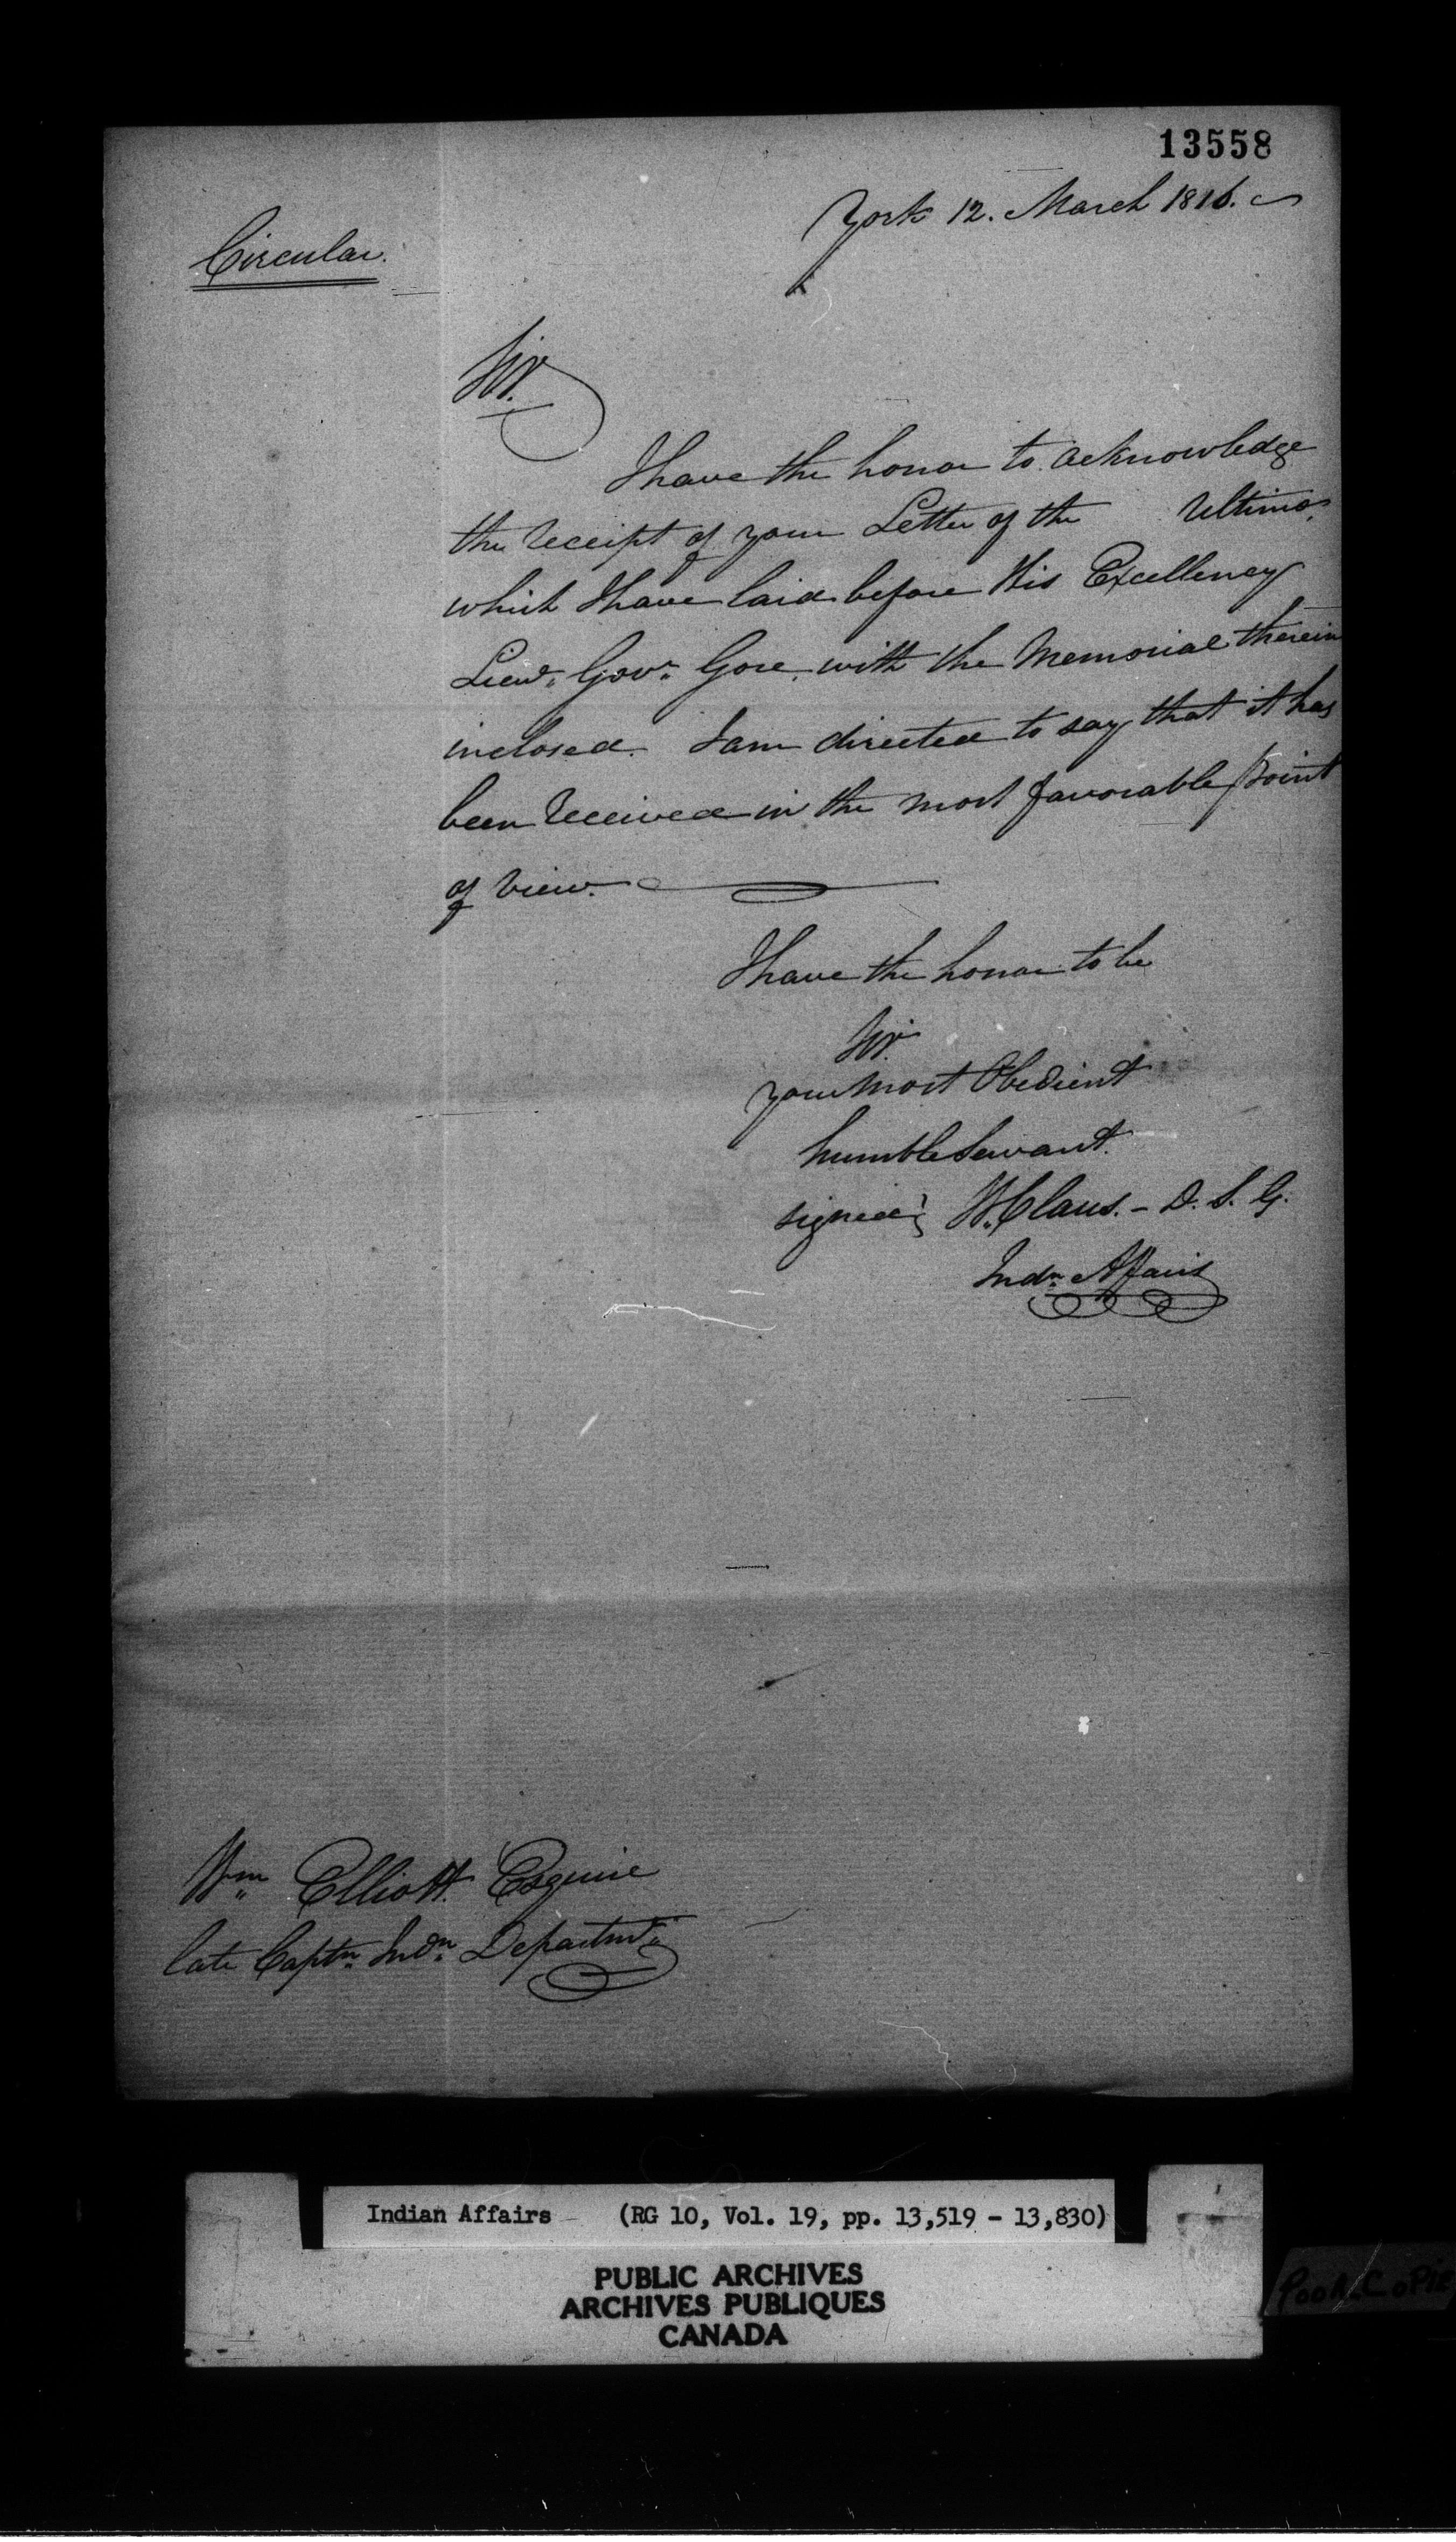 13558
York 12. March 1816.
Circular.
Sir.
I have the honor to acknowledge
the receipt of your Letter of the Ultimo,
which I have laid before His Excellency
Lieut. Govr. Gore, with the Memorial therein
inclosed. I am directed to say that it has
been received in the most favorable point
of view.
I have the honor to be
Sir.
your most Obedient
humble Servant.
signed W. Claus. - D. S. G.
Indn. Affairs
Wm. Elliott Esquire
late Captn. Indn. Departmt.
Indian Affairs (RG 10, Vol. 19, pp. 13,519 - 13,830)
PUBLIC ARCHIVES
ARCHIVES PUBLIQUES
CANADA
POOR COPIE